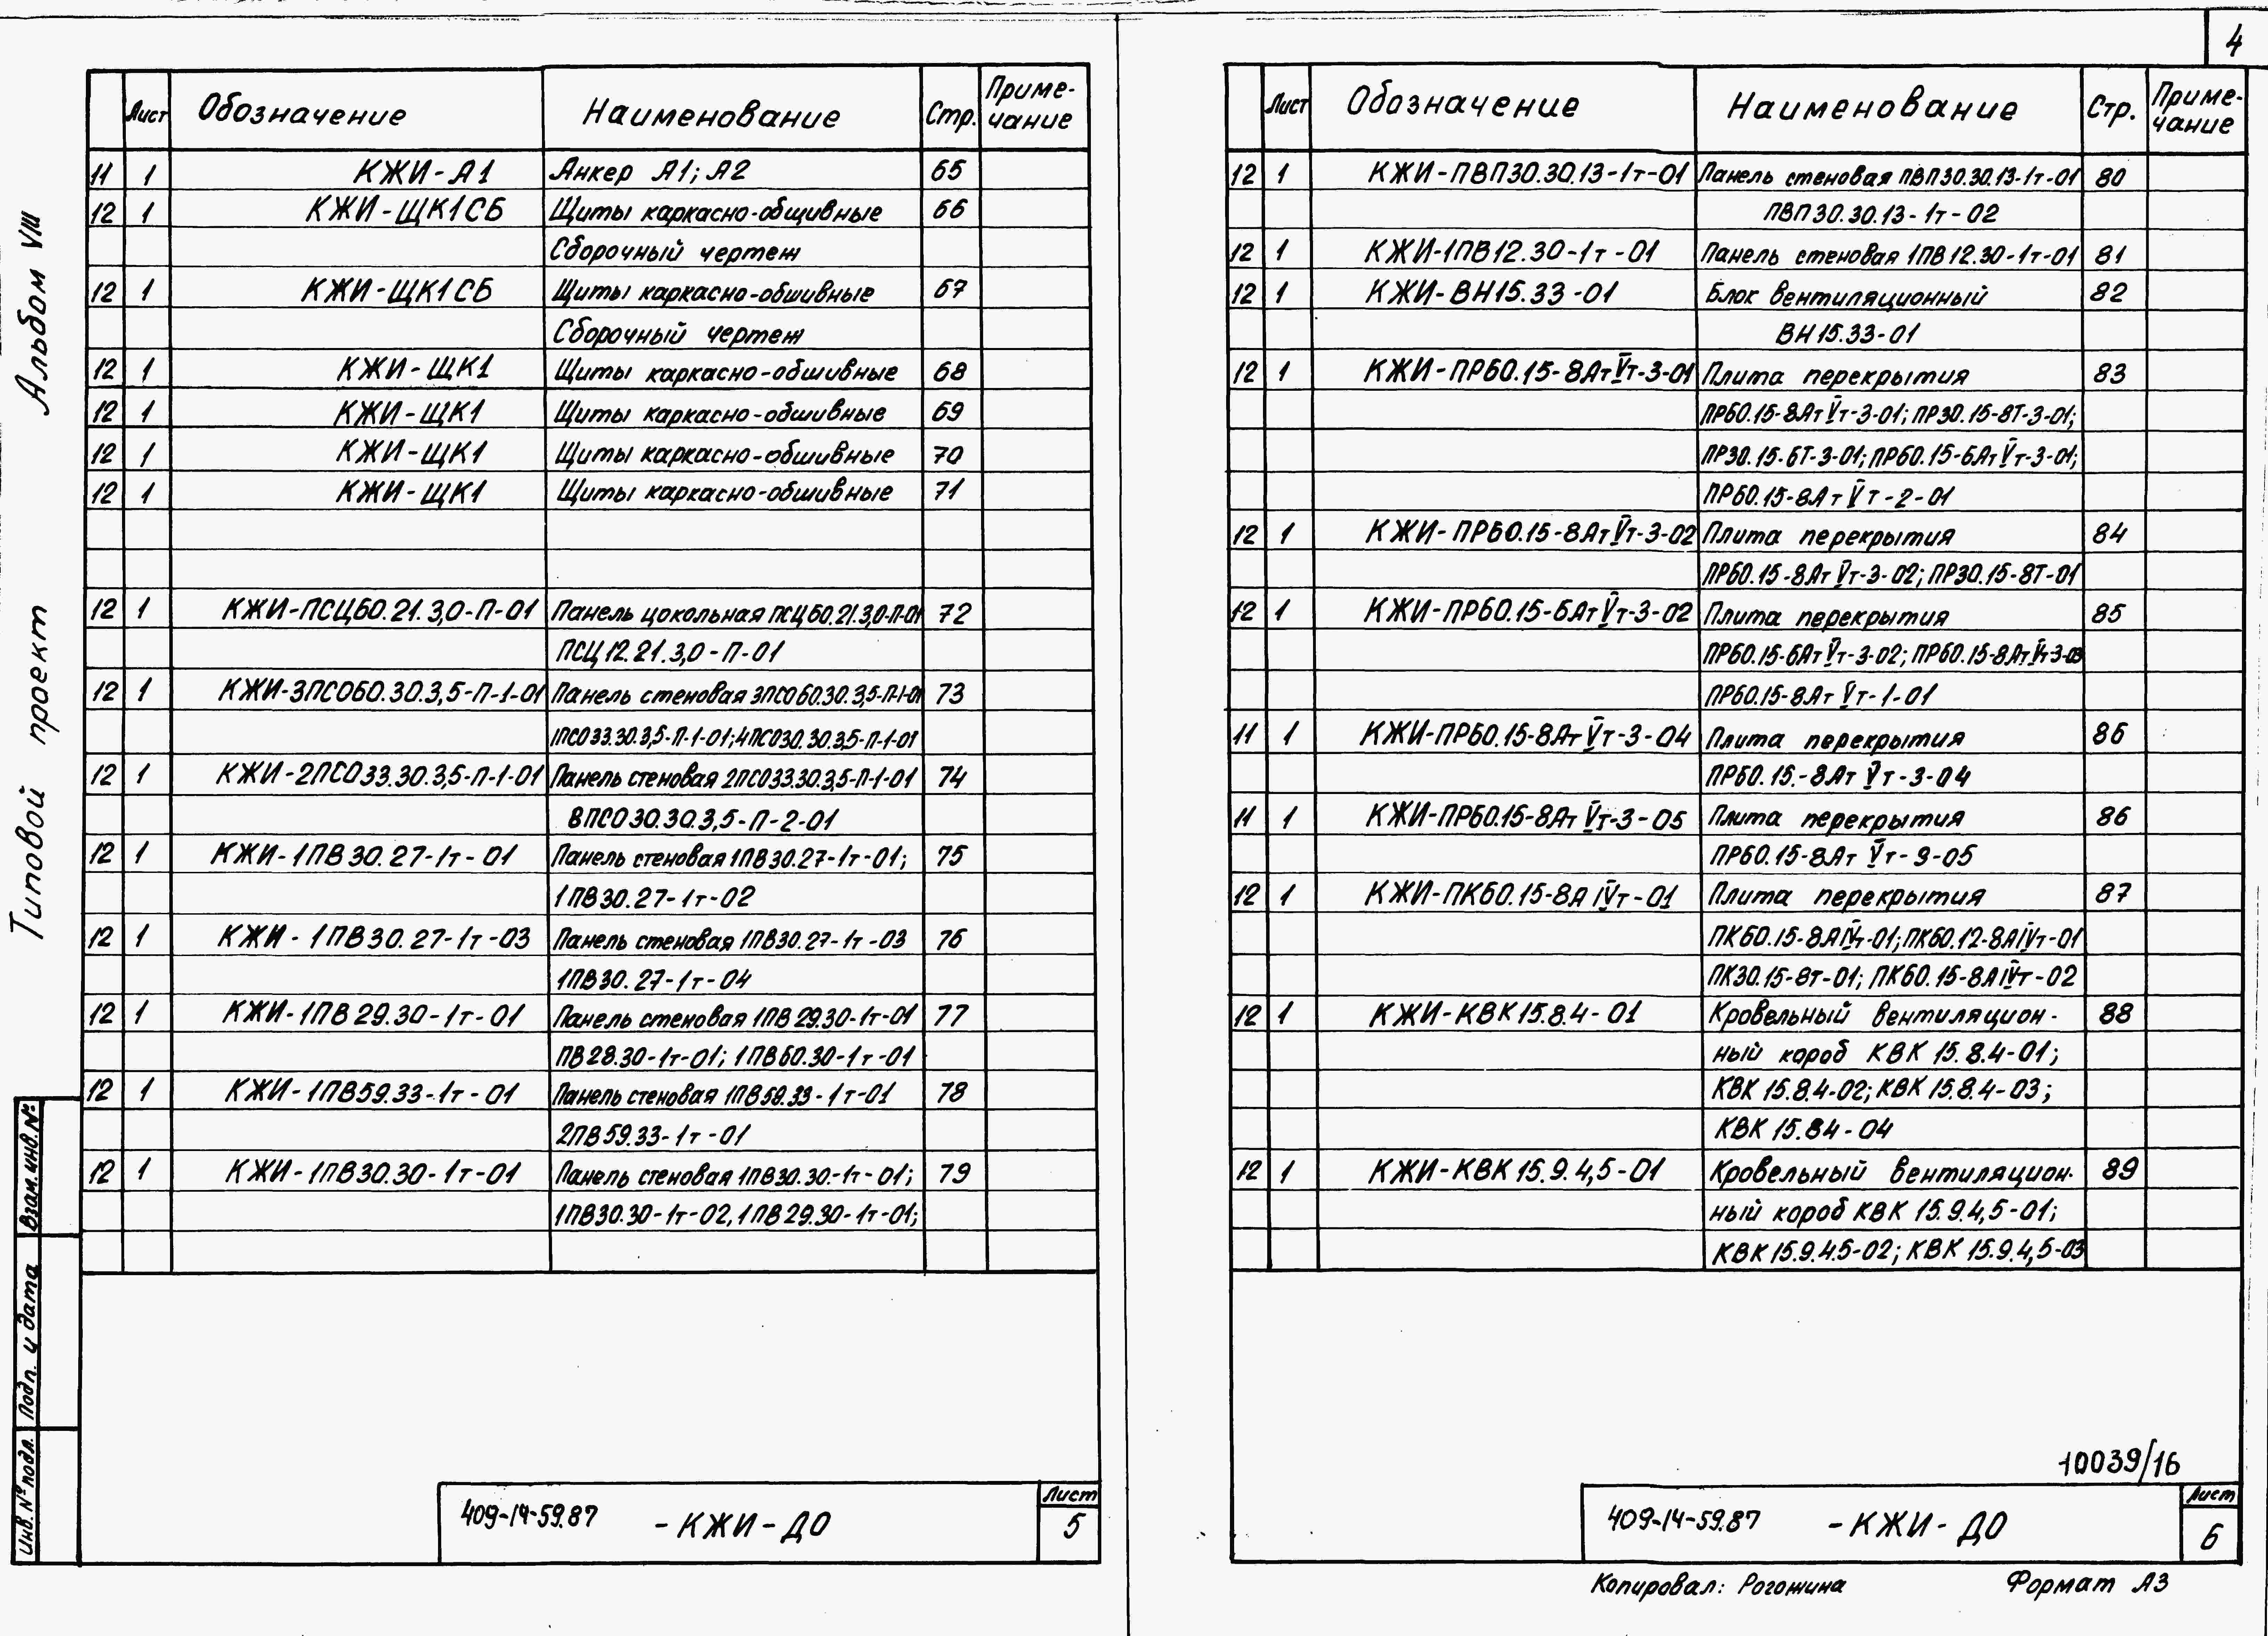 4
Типовой проект Альбом VIII
Лист Обозначение Наименование Стр. Приме-
чание
11 1 КЖИ-А1 Анкер А1; А2 65
12 1 КЖИ-ЩК1СБ Щиты каркасно-обшивные 66
Сборочный чертеж
12 1 КЖИ-ЩК1СБ Щиты каркасно-обшивные 67
Сборочный чертеж
12 1 КЖИ-ЩК1 Щиты каркасно-обшивные 68
12 1 КЖИ-ЩК1 Щиты каркасно-обшивные 69
12 1 КЖИ-ЩК1 Щиты каркасно-обшивные 70
12 1 КЖИ-ЩК1 Щиты каркасно-обшивные 71
12 1 КЖИ-ПСЦ60.21.3,0-П-01 Панель цокольная ПСЦ60.21.3,0-П-01 72
ПСЦ12.21.3,0-П-01
12 1 КЖИ-3ПСО60.30.3,5-П-1-01 Панель стеновая 3ПСО60.30.3,5-П-1-01 73
1ПСО33.30.3,5-П-1-01; 4ПСО30.30.3,5-П-1-01
12 1 КЖИ-2ПСО33.30.3,5-П-1-01 Панель стеновая 2ПСО33.30.3,5-П-1-01 74
8ПСО30.30.3,5-П-2-01
12 1 КЖИ-1ПВ30.27-1т-01 Панель стеновая 1ПВ30.27-1т-01; 75
1ПВ30.27-1т-02
12 1 КЖИ-1ПВ30.27-1т-03 Панель стеновая 1ПВ30.27-1т-03 76
1ПВ30.27-1т-04
12 1 КЖИ-1ПВ29.30-1т-01 Панель стеновая 1ПВ29.30-1т-01 77
ПВ28.30-1т-01; 1ПВ60.30-1т-01
12 1 КЖИ-1ПВ59.33-1т-01 Панель стеновая 1ПВ59.33-1т-01 78
2ПВ59.33-1т-01
12 1 КЖИ-1ПВ30.30-1т-01 Панель стеновая 1ПВ30.30-1т-01; 79
1ПВ30.30-1т-02, 1ПВ29.30-1т-01;
Взам. инв. №
Подп. и дата
Инв. № подл.
409-14-59.87 -КЖИ-ДО
Лист
5
Лист Обозначение Наименование Стр. Приме-
чание
12 1 КЖИ-ПВП30.30.13-1т-01 Панель стеновая ПВП30.30.13-1т-01 80
ПВП30.30.13-1т-02
12 1 КЖИ-1ПВ12.30-1т-01 Панель стеновая 1ПВ12.30-1т-01 81
12 1 КЖИ-ВН15.33-01 Блок вентиляционный 82
ВН15.33-01
12 1 КЖИ-ПР60.15-8АтVт-3-01 Плита перекрытия 83
ПР60.15-8АтVт-3-01; ПР30.15-8Т-3-01;
ПР30.15-6Т-3-01; ПР60.15-6АтVт-3-01;
ПР60.15-8АтVт-2-01
12 1 КЖИ-ПР60.15-8АтVт-3-02 Плита перекрытия 84
ПР60.15-8АтVт-3-02; ПР30.15-8Т-01
12 1 КЖИ-ПР60.15-6АтVт-3-02 Плита перекрытия 85
ПР60.15-6АтVт-3-02; ПР60.15-8АтVт-3-03
ПР60.15-8АтVт-1-01
11 1 КЖИ-ПР60.15-8АтVт-3-04 Плита перекрытия 86
ПР60.15.-8АтVт-3-04
11 1 КЖИ-ПР60.15-8АтVт-3-05 Плита перекрытия 86
ПР60.15-8АтVт-3-05
12 1 КЖИ-ПК60.15-8АIVт-01 Плита перекрытия 87
ПК60.15-8АIVт-01; ПК60.12-8АIVт-01
ПК30.15-8т-01; ПК60.15-8АIVт-02
12 1 КЖИ-КВК15.8.4-01 Кровельный вентиляцион- 88
ный короб КВК 15.8.4-01;
КВК 15.8.4-02; КВК 15.8.4-03;
КВК 15.84-04
12 1 КЖИ-КВК15.9.4,5-01 Кровельный вентиляцион- 89
ный короб КВК 15.9.4,5-01;
КВК15.9.4.5-02; КВК 15.9.4,5-03
10039/16
409-14-59.87 -КЖИ-ДО
Лист
6
Копировал: Рогожина Формат А3